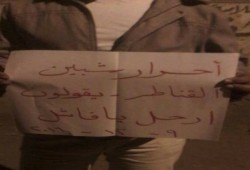 أحرار شبين
القناطر يقولون
ارحل يا فاتل